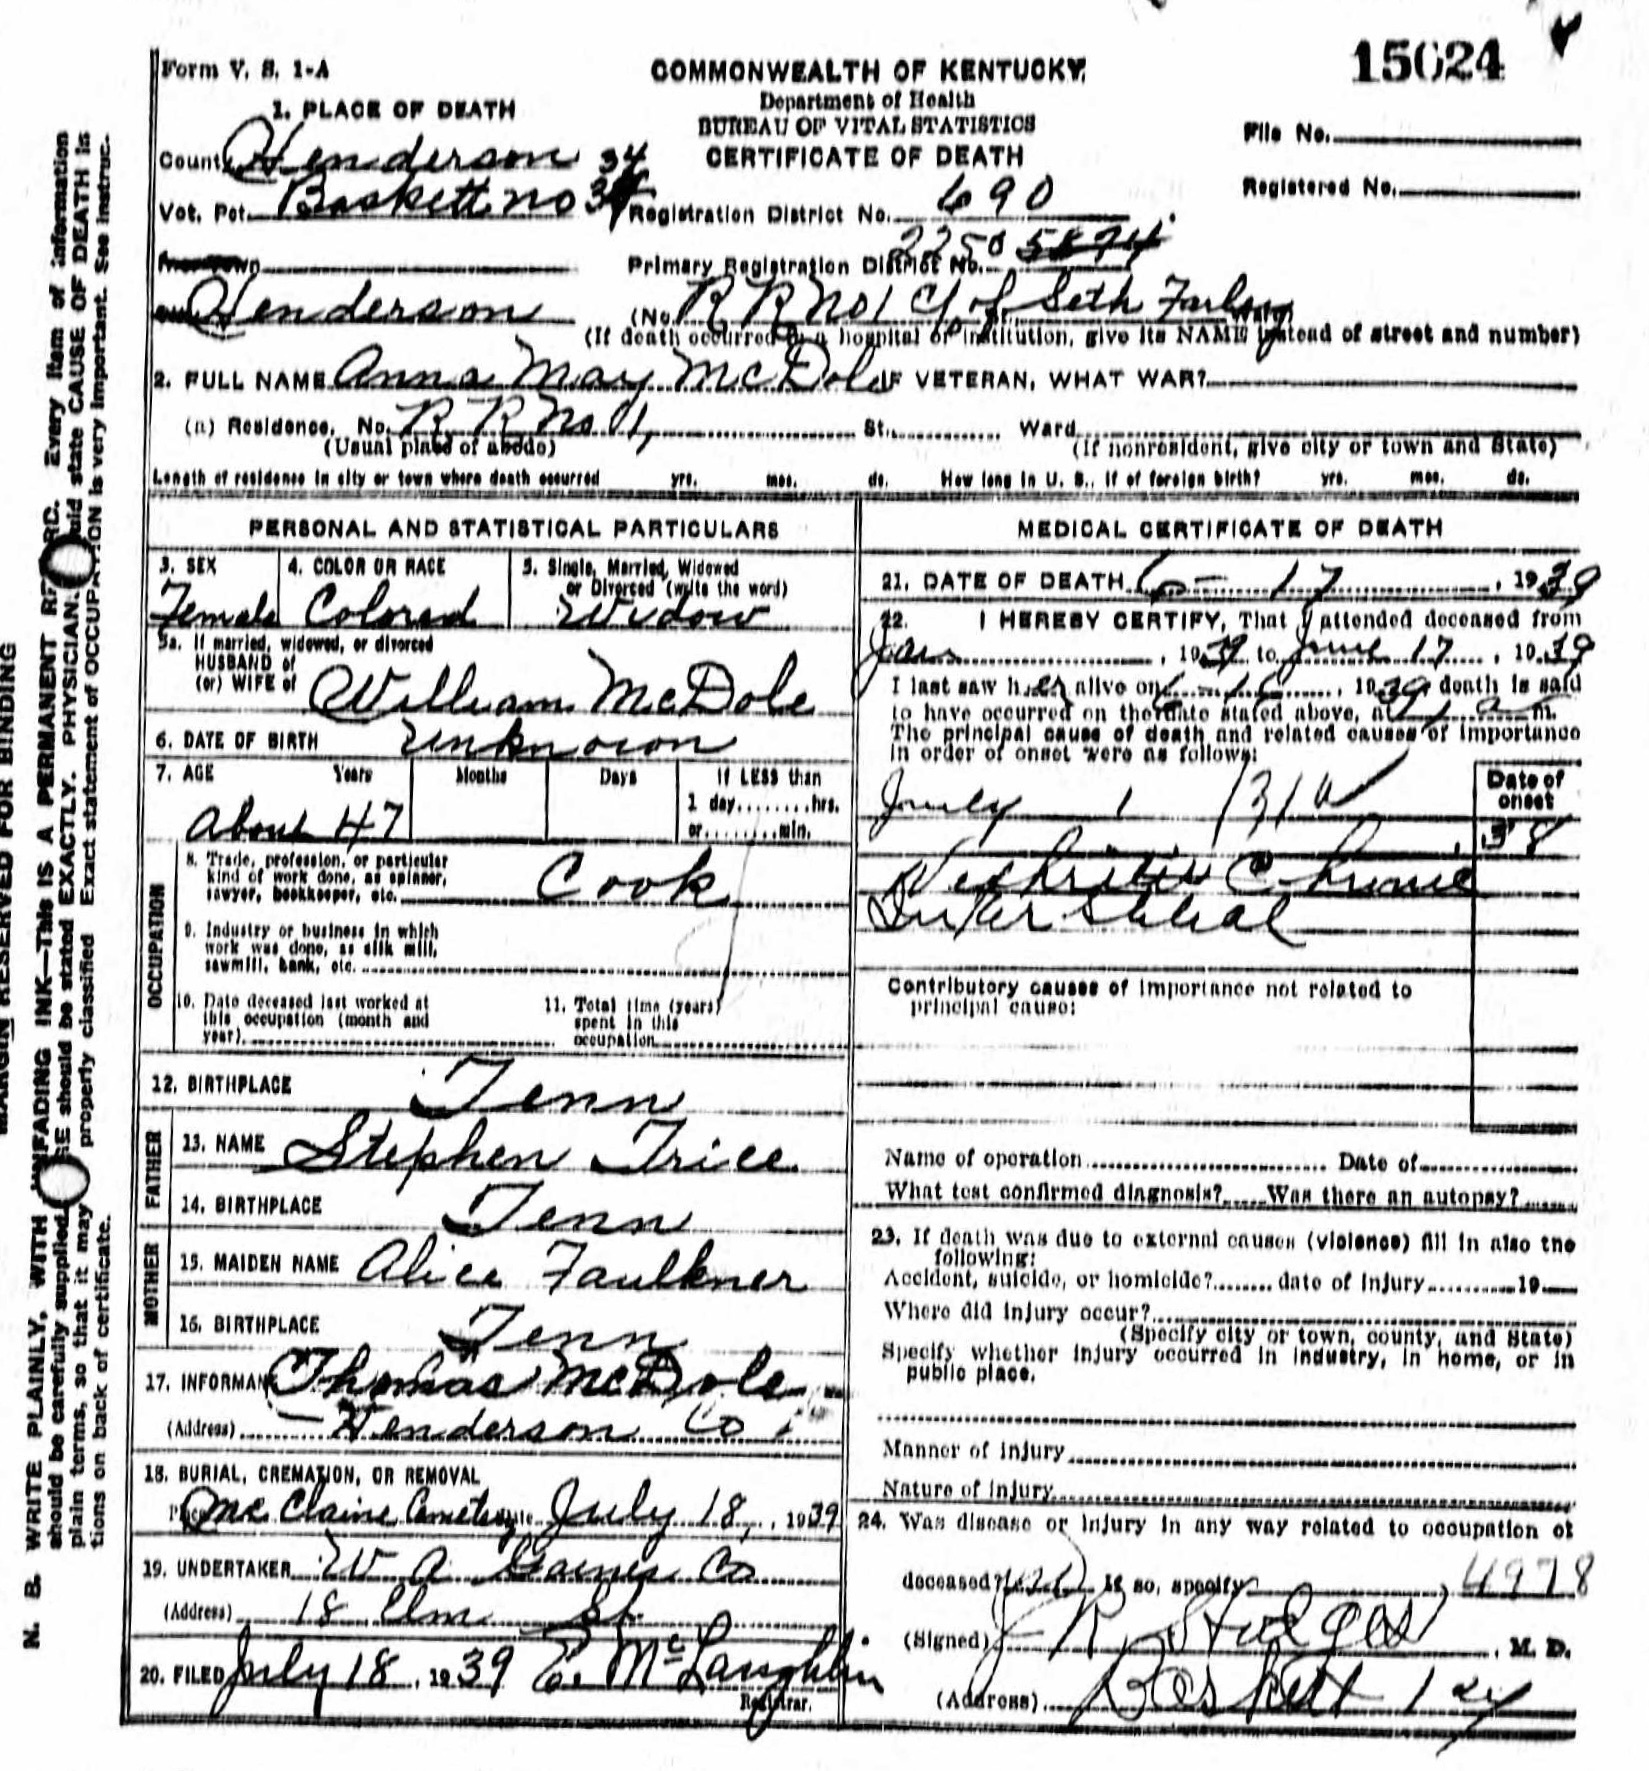 Form V. S. 1-A
COMMONWEALTH OF KENTUCKY.
15624
Department of Health
1. PLACE OF DEATH
BUREAU OF VITAL STATISTICS
File No.
County Henderson 34
CERTIFICATE OF DEATH
Registered No.
Vot. Pct. Baskett no 34
Registration District No. 690
Primary Registration District No. 2250 5874
Henderson (No. R R No 1 c/of Seth
(If death occurred in a hospital or institution, give its NAME instead of street and number)
2. FULL NAME Anna May McDole IF VETERAN, WHAT WAR?
(a) Residence. No. R R No 1, St. Ward
(Usual place of abode) (If nonresident, give city or town and State)
Length of residence in city or town where death occurred yrs. mos. ds. How long in U. S., if of foreign birth? yrs. mos. ds.
PERSONAL AND STATISTICAL PARTICULARS
3. SEX
Female
4. COLOR OR RACE
Colored
5. Single, Married, Widowed
or Divorced (write the word)
Widow
5a. If married, widowed, or divorced
HUSBAND of
(or) WIFE of William McDole
6. DATE OF BIRTH Unknown
7. AGE Years Months Days If LESS than
1 day........hrs.
or........min.
About 47
OCCUPATION
8. Trade, profession, or particular
kind of work done, as spinner,
sawyer, bookkeeper, etc. Cook
9. Industry or business in which
work was done, as silk mill,
sawmill, bank, etc.
10. Date deceased last worked at
this occupation (month and
year)
11. Total time (years)
spent in this
occupation
12. BIRTHPLACE Tenn
FATHER
13. NAME Stephen Trice
14. BIRTHPLACE Tenn
MOTHER
15. MAIDEN NAME Alice Faulkner
16. BIRTHPLACE Tenn
17. INFORMANT Thomas McDole
(Address) Henderson Co
18. BURIAL, CREMATION, OR REMOVAL
Place McClaine Cemetery Date July 18, 1939
19. UNDERTAKER W A Gaines Co
(Address) 18 Elm St
20. FILED July 18, 1939 E. McLaughlin
Registrar.
MEDICAL CERTIFICATE OF DEATH
21. DATE OF DEATH 6-17, 1939
22. I HEREBY CERTIFY, That I attended deceased from
Jan , 1939 to June 17, 1939
I last saw her alive on 6-16, 1939 death is said
to have occurred on the date stated above, at m.
The principal cause of death and related causes of importance
in order of onset were as follows:
Date of
onset
July 1 131a
38
Nephritis Chronic
Interstitial
Contributory causes of importance not related to
principal cause:
Name of operation Date of
What test confirmed diagnosis? Was there an autopsy?
23. If death was due to external causes (violence) fill in also the
following:
Accident, suicide, or homicide? date of injury 19
Where did injury occur?
(Specify city or town, county, and State)
Specify whether injury occurred in industry, in home, or in
public place.
Manner of injury
Nature of injury
24. Was disease or injury in any way related to occupation of
deceased? If so, specify 4978
(Signed) J R Hodges, M. D.
(Address) Baskett Ky
MARGIN RESERVED FOR BINDING
N. B. WRITE PLAINLY, WITH UNFADING INK—THIS IS A PERMANENT RECORD. Every item of information
should be carefully supplied. AGE should be stated EXACTLY. PHYSICIANS should state CAUSE OF DEATH in
plain terms, so that it may properly classified Exact statement of OCCUPATION is very important. See instruc-
tions on back of certificate.